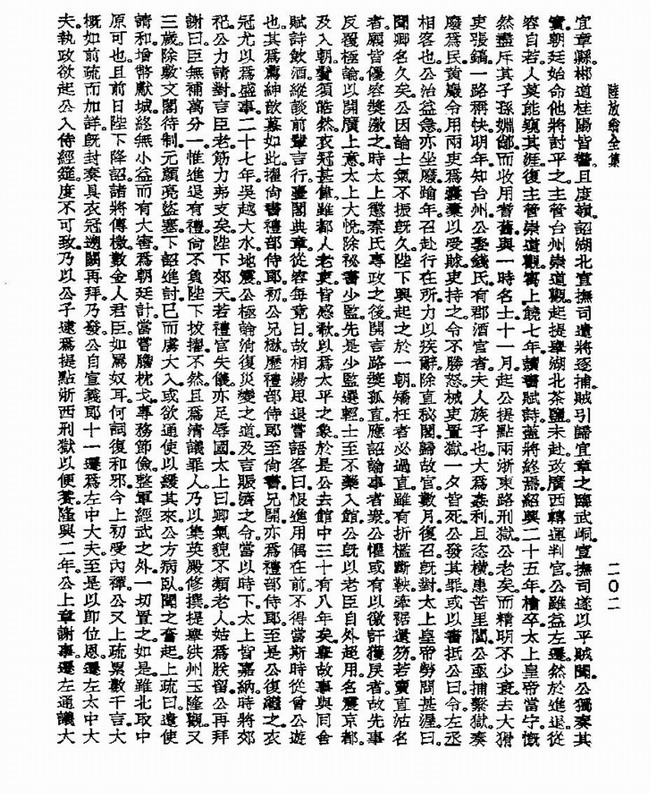 陸放翁全集
二〇二
宜章縣。郴道桂陽皆警。且度嶺。詔湖北宣撫司遣將逐捕。賊引歸宜章之臨武峒。宣撫司遂以平賊聞。公獨奏其
實。朝廷始命他將討平之。主管台州崇道觀。起提舉湖北茶鹽。未赴。改廣西轉運判官。公雖益左遷。然於進退從
容自若。人莫能窺其涯。復主管崇道觀。寓上饒七年。讀書賦詩。蓋將終焉。紹興二十五年。檜卒。太上皇帝當宁慨
然。盡斥其子孫婣黨。而收用耆舊與一時名士。十一月。起公提點兩浙東路刑獄。公老矣。而精明不少衰。去大猾
吏張鎬。一路稱快。明年。知台州。公娶錢氏。有郡酒官者。夫人族子也。大為姦利。且恣橫患苦里閭。公亟捕繫獄。奏
廢為民。黃巖令用兩吏為囊橐以受賕。吏持之。令不勝怒。械吏置獄。一夕皆死。公發其罪。或以書抵公曰。令左丞
相客也。公治益急。亦坐廢。踰年。召赴行在所。力以疾辭。除直秘閣歸故官。數月。復召。既對。太上皇帝勞問甚渥曰。
聞卿名久矣。公因論士氣不振既久。陛下興起之於一朝。矯枉者必過直。雖有折檻斷鞅。牽裾還笏。若賣直沽名
者。願皆優容獎激之。時太上懲秦氏專政之後。開言路。獎孤直。應詔論事者眾。公懼或有以激訐獲戾者。故先事
反覆極論。以開廣上意。太上大悅。除秘書少監。先是少監選輕。士至不樂入館。公既以老臣自外超用。名震京都。
及入朝。鬢須皓然。衣冠甚偉。雖都人老吏皆感歎。以為太平之象。於是公去館中三十有八年矣。舉故事與同舍
賦詩飲酒。縱談前輩言行。臺閣典章。從容每竟日。故相湯思退嘗語客曰。恨進用偶在前。不得當斯時從曾公遊
也。其為薦紳歆慕如此。擢尚書禮部侍郎。初公兄楙。歷禮部侍郎至尚書。兄開。亦為禮部侍郎。至是公復繼之。衣
冠尤以為盛事。二十七年。吳越大水地震。公極論消復災變之道。及言賑濟之令。當以時下。太上皆嘉納。時將郊
祀。公力請對。言臣老。筋力弗支矣。陛下郊天。若禮官失儀。亦足辱國。太上曰。卿氣貌不類老人。姑為朕留。公再拜
謝曰。臣無補萬分一。惟進退有禮。尚不負陛下拔擢。不然。且為清議罪人。乃以集英殿修撰提舉洪州玉隆觀。又
三歲。除敷文閣待制。元顏亮盜塞。下詔進討。已而虜大入。或欲通使以緩其來。公方病臥。聞之奮起。上疏曰。遣使
請和。增幣獻城。終無小益。而有大害。為朝廷計。當嘗膽枕戈。專務節儉。整軍經武之外。一切置之。如是雖北取中
原可也。且前日陛下降詔諸將傳檄。數金人君臣如罵奴耳。何詞復和邪。今上初受內禪。公又上疏。累數千言。大
概如前疏而加詳。既封奏。具衣冠遡闕再拜乃發。公自宣義郎十一遷為左中大夫。至是以卽位恩。遷左太中大
夫。執政欲起公入侍經筵。度不可致。乃以公子逮為提點浙西刑獄以便養。隆興二年。公上章謝事。遷左通議大